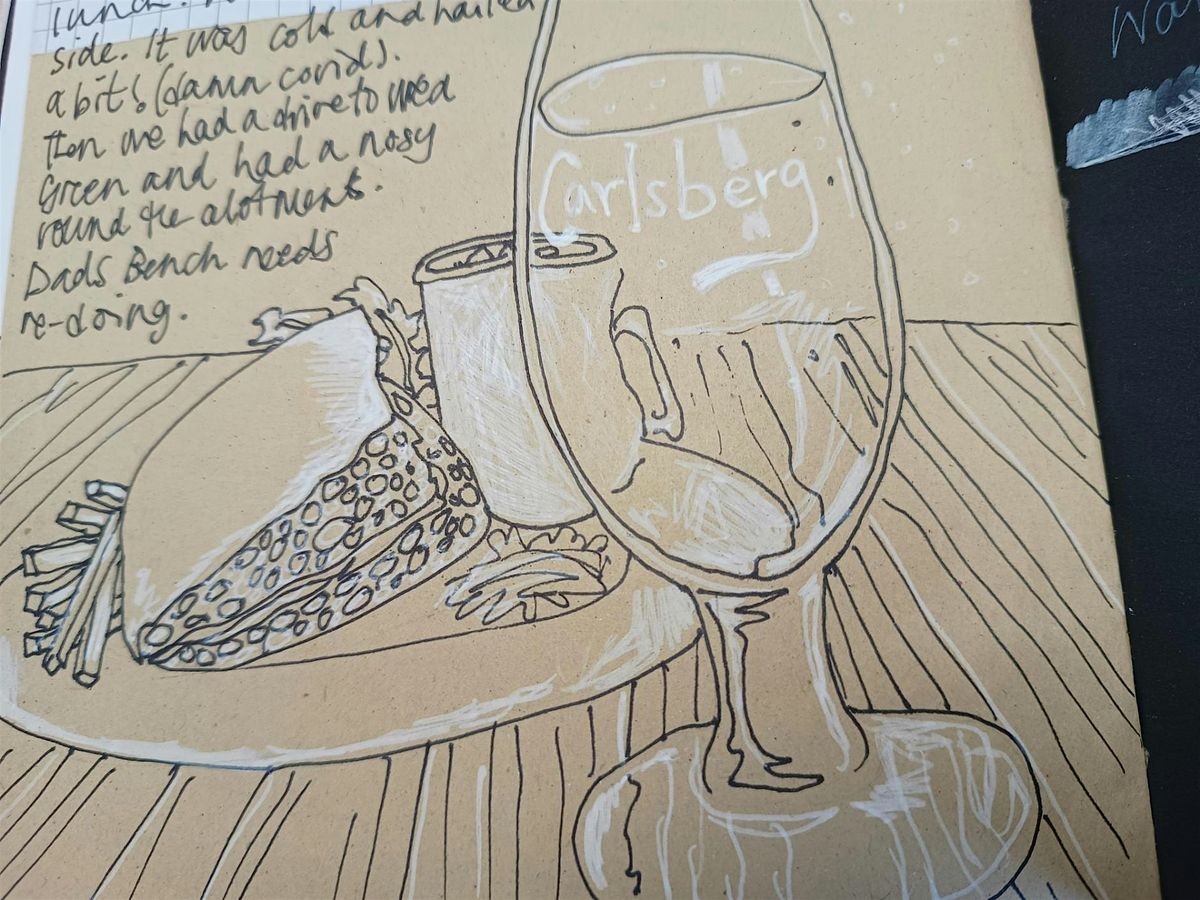 lunch.
side. It was cold and hailed
a bit! (damn covid).
Then we had a drive to
Green and had a nosy
round the alotments.
Dads Bench needs
re-doing.
Carlsberg
Wa